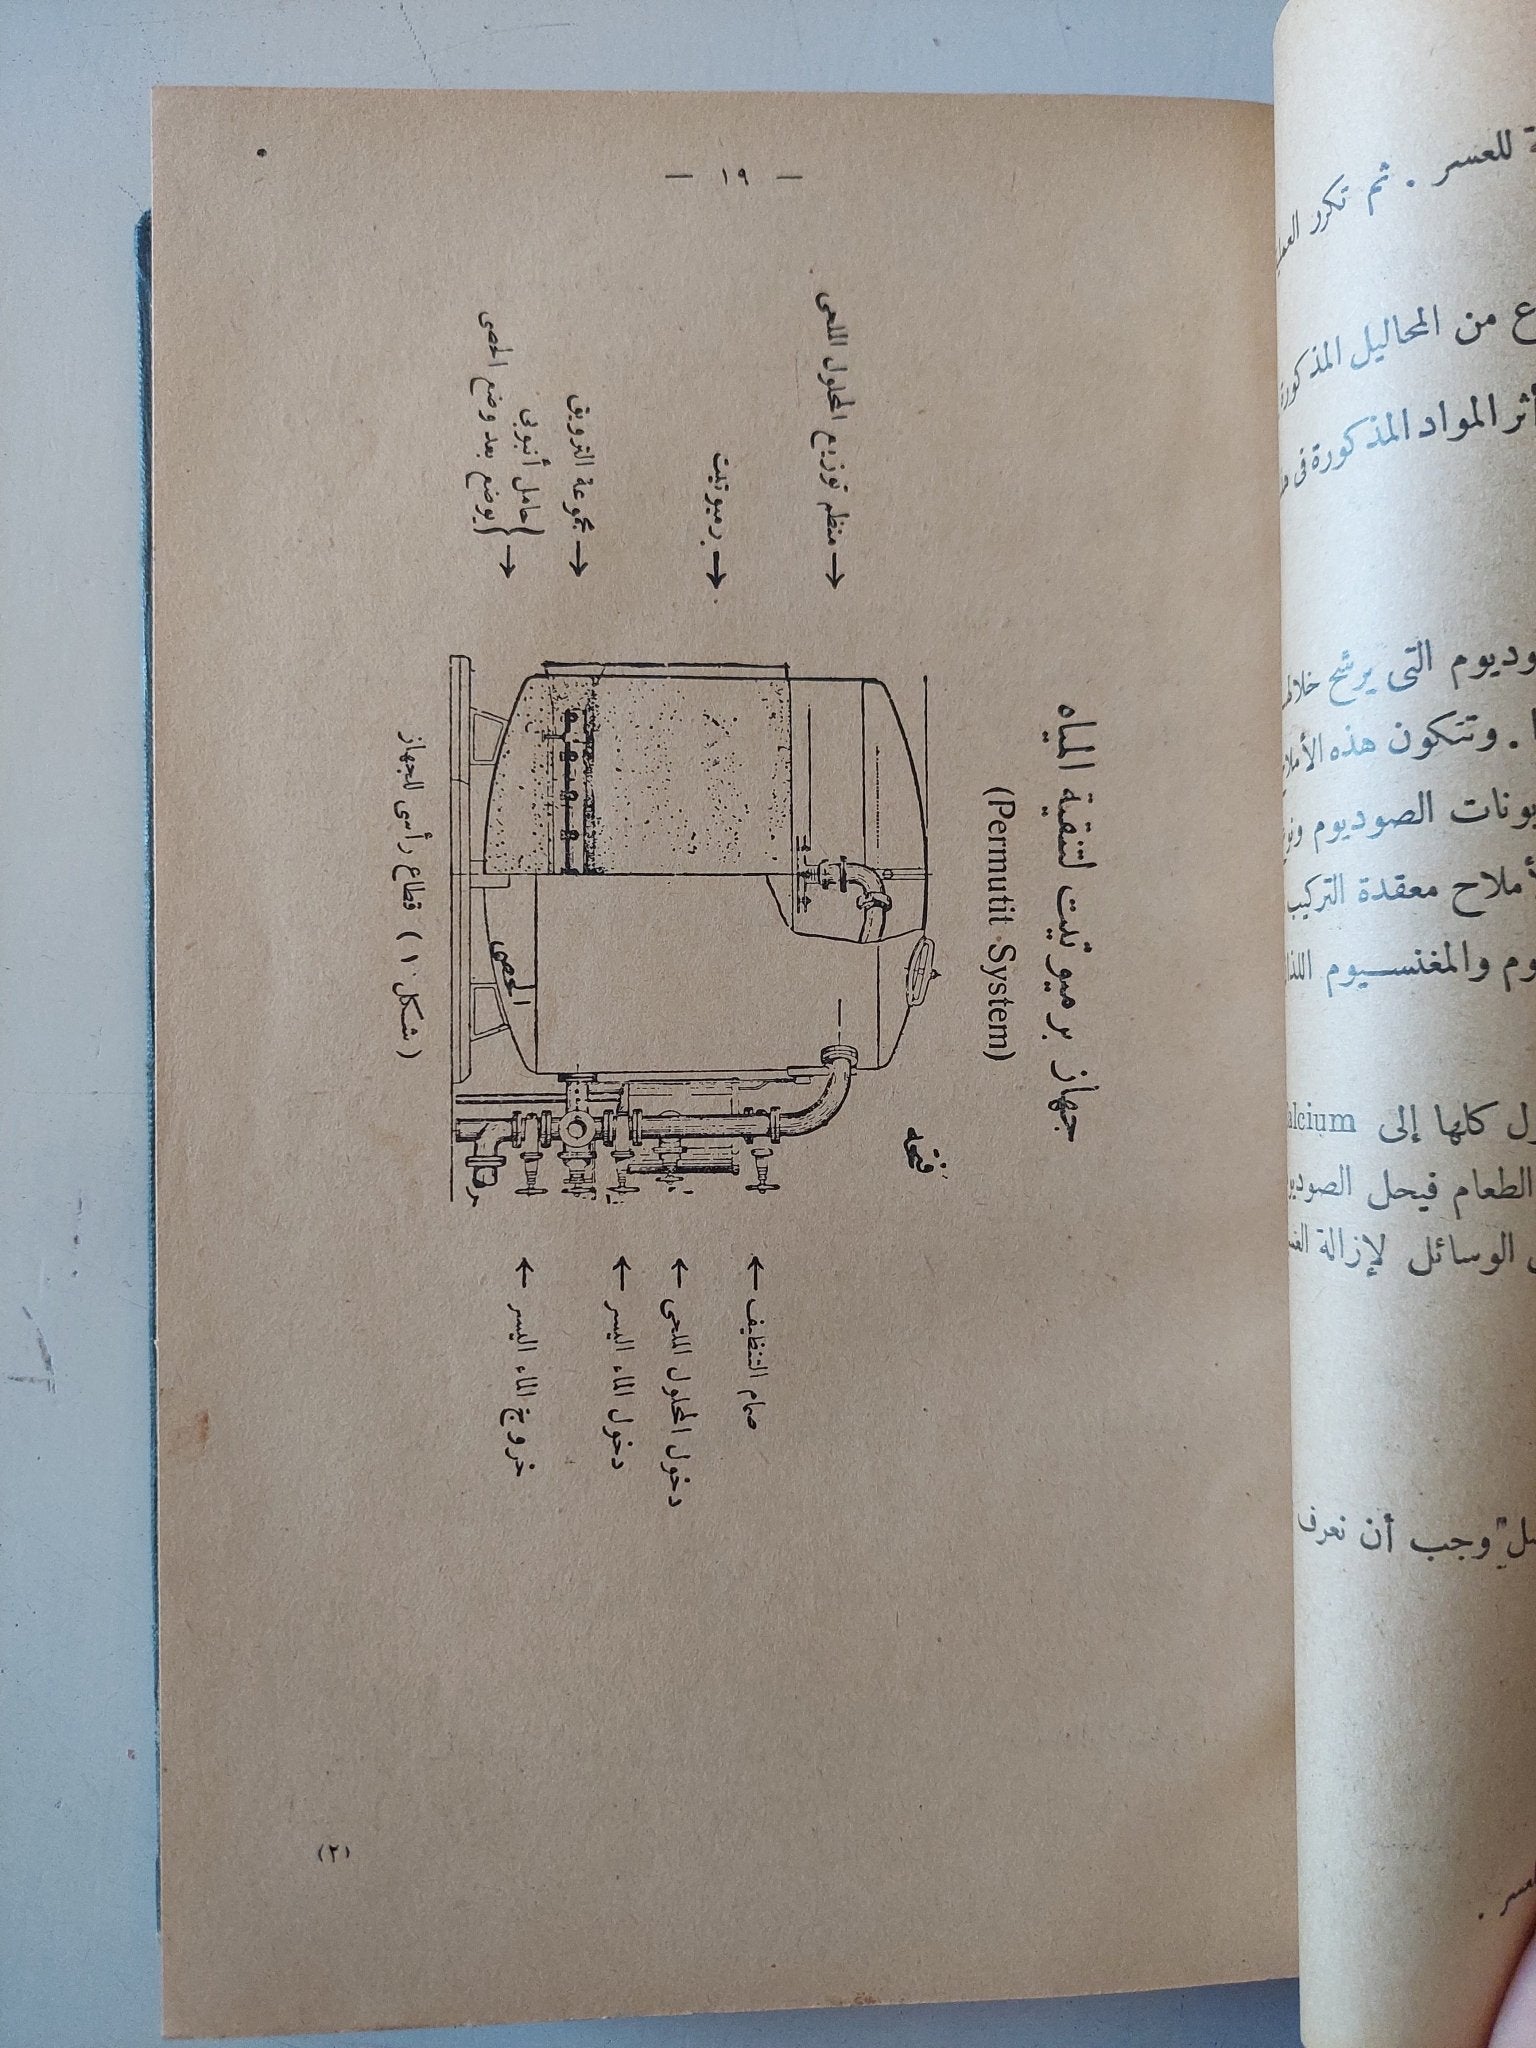 — ١٩ —
جهاز برميوتيت لتنقية المياه
(Permutit System)
فتحة
منظم توزيع المحلول الملحى
برميوتيت
مجموعة الترويق
حامل أنبوبى
يوضع بعد وضع الحصى
صمام التنظيف
دخول المحلول الملحى
دخول الماء اليسر
خروج الماء اليسر
الحصى
(شكل ١) قطاع رأسى للجهاز
(٢)
ة للعسر . ثم تكرر
ع من المحاليل المذكورة
أثر المواد المذكورة فى
وديوم التى يرشح
. وتتكون هذه
يونات الصوديوم
أملاح معقدة التركيب
وم والمغنسيوم
ول كلها إلى alcium
الطعام فيحل
الوسائل لإزالة
وجب أن نعرف